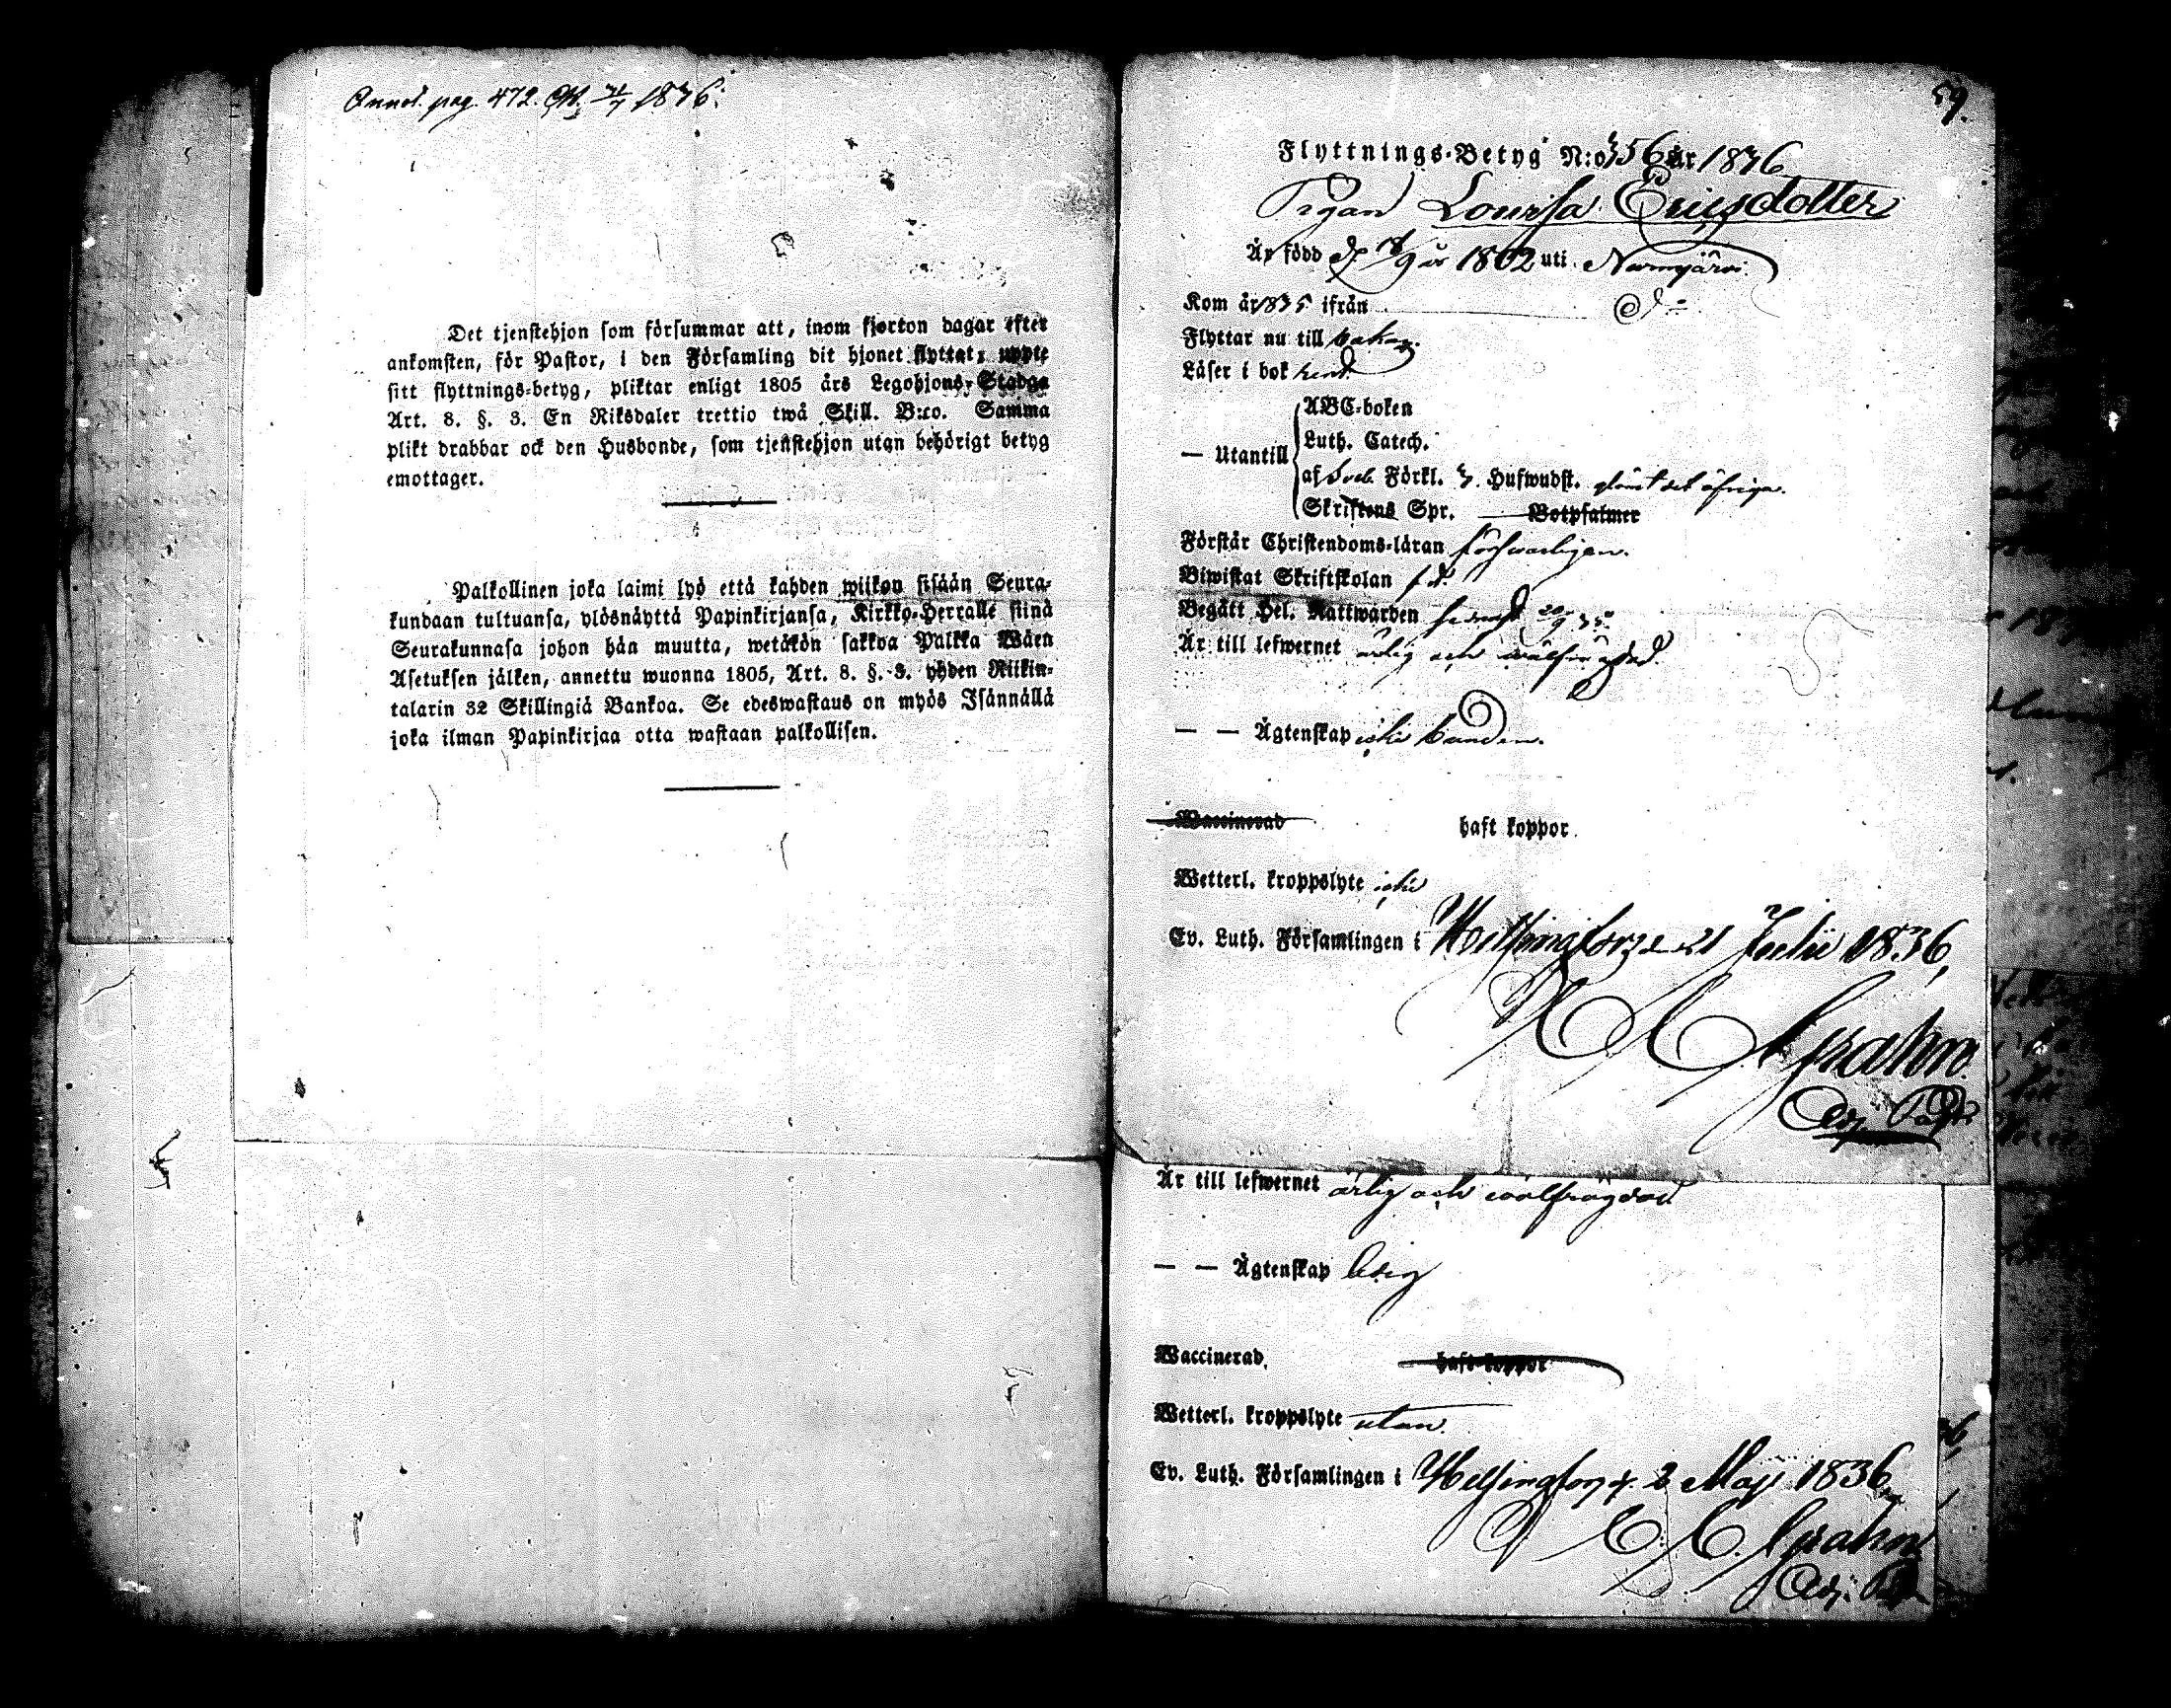 Annot. pag. 472. 31/7 1836.
Det tjenstehjon som försummar att, inom fjorton dagar efter
ankomsten, för Pastor, i den Församling dit hjonet flyttat, uppte
sitt flyttnings-betyg, pliktar enligt 1805 års Legohjons-Stadga
Art. 8. §. 3. En Riksdaler trettio twå Skill. B:co. Samma
plikt drabbar ock den Husbonde, som tjenstehjon utan behörigt betyg
emottager.
Palkollinen joka laimi lyö että kahden wiikon sisään Seura-
kundaan tultuansa, ylösnäyttä Papinkirjansa, Kirkko-Herralle siinä
Seurakunnasa johon hän muutta, wetäkön sakkoa Palkka Wäen
Asetuksen jälken, annettu wuonna 1805, Art. 8. §. 3. yhden Riikin-
talarin 32 Skillingiä Bankoa. Se edeswastaus on myös Isännällä
joka ilman Papinkirjaa otta wastaan palkollisen.
59.
Flyttnings-Betyg N:o 356 år 1836
Pigan Lovisa Ericsdotter
Är född d. 18/9 år 1802 uti Nurmijärvi.
Kom år 1835 ifrån d:o
Flyttar nu till bakar.
Läser i bok
— Utantill
ABC-boken
Luth. Catech.
af Sveb. Förkl. 3 Hufwudst. glömt det öfriga.
Skriftens Spr. Botpsalmer
Förstår Christendoms-läran försvarligen.
Biwistat Skriftskolan f. d.
Begått Hel. Nattwarden senast 20/9 35.
Är till lefwernet ärlig och wälfrägdad.
— — Ägtenskap icke bunden.
Waccinerad haft koppor
Wetterl. kroppslyte icke
Ev. Luth. Församlingen i Helsingfors d. 21 Julii 1836,
Grahn
Adj. Past.
Är till lefwernet ärlig och wälfrägdad
— — Ägtenskap ledig
Waccinerad haft koppor
Wetterl. kroppslyte utan.
Ev. Luth. Församlingen i Helsingfors d. 2 Maji 1836
Grahn
Adj. Past.